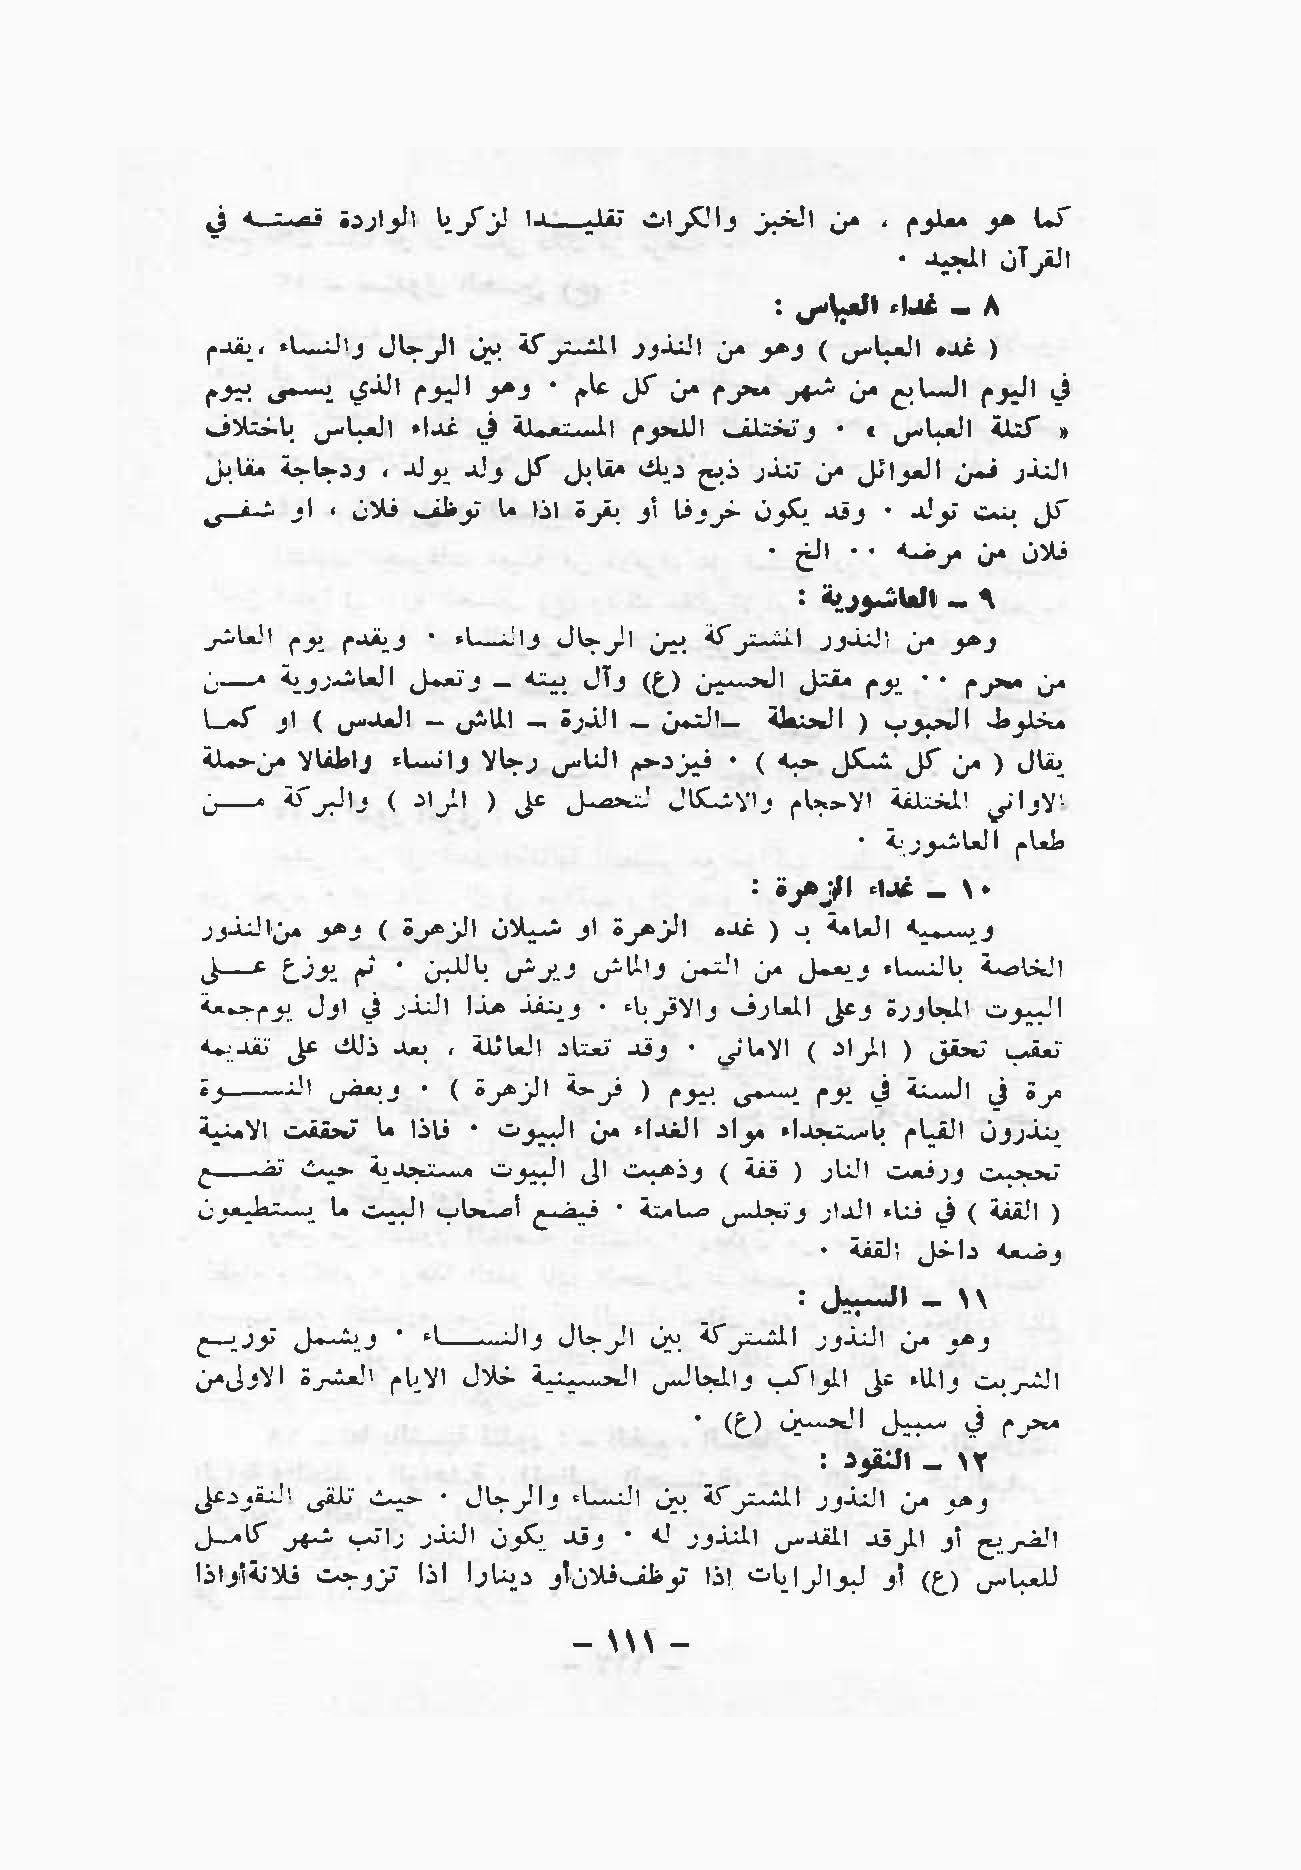 كما هو معلوم ، من الخبز والكراث تقليـــدا لزكريا الواردة قصتــه في
القرآن المجيد ٠
٨ ــ غداء العباس :
( غده العباس ) وهو من النذور المشتركة بين الرجال والنساء ،يقدم
في اليوم السابع من شهر محرم من كل عام ٠ وهو اليوم الذي يسمى بيوم
« كتلة العباس » ٠ وتختلف اللحوم المستعملة في غداء العباس باختلاف
النذر فمن العوائل من تنذر ذبح ديك مقابل كل ولد يولد ، ودجاجة مقابل
كل بنت تولد ٠ وقد يكون خروفا أو بقرة اذا ما توظف فلان ، او شفــى
فلان من مرضه ٠٠ الخ ٠
٩ ــ العاشورية :
وهو من النذور المشتركة بين الرجال والنساء ٠ ويقدم يوم العاشر
من محرم ٠٠ يوم مقتل الحسين (ع) وآل بيته ــ وتعمل العاشروية مــن
مخلوط الحبوب ( الحنطة ــالتمن ــ الذرة ــ الماش ــ العدس ) او كمــا
يقال ( من كل شكل حبه ) ٠ فيزدحم الناس رجالا وانساء واطفالا من حملة
الاواني المختلفة الاحجام والاشكال لتحصل على ( المراد ) والبركة مـــن
طعام العاشورية ٠
١٠ ــ غداء الزهرة :
ويسميه العامة بـ ( غده الزهرة او شيلان الزهرة ) وهو من النذور
الخاصة بالنساء ويعمل من التمن والماش ويرش باللبن ٠ ثم يوزع علــى
البيوت المجاورة وعلى المعارف والاقرباء ٠ وينفذ هذا النذر في اول يوم جمعة
تعقب تحقق ( المراد ) الاماني ٠ وقد تعتاد العائلة ، بعد ذلك على تقديمه
مرة في السنة في يوم يسمى بيوم ( فرحة الزهرة ) ٠ وبعض النســـوة
ينذرون القيام باستجداء مواد الغداء من البيوت ٠ فاذا ما تحققت الامنية
تحجبت ورفعت النار ( قفة ) وذهبت الى البيوت مستجدية حيث تضــع
( القفة ) في فناء الدار وتجلس صامتة ٠ فيضع أصحاب البيت ما يستطيعون
وضعه داخل القفة ٠
١١ ــ السبيل :
وهو من النذور المشتركة بين الرجال والنســـاء ٠ ويشمل توزيــع
الشربت والماء على المواكب والمجالس الحسينية خلال الايام العشرة الاولى من
محرم في سبيل الحسين (ع) ٠
١٢ ــ النقود :
وهو من النذور المشتركة بين النساء والرجال ٠ حيث تلقى النقود على
الضريح أو المرقد المقدس المنذور له ٠ وقد يكون النذر راتب شهر كامــل
للعباس (ع) أو لبوالرايات إذا توظف فلان أو دينارا اذا تزوجت فلانة أو اذا
ــ ١١١ ــ